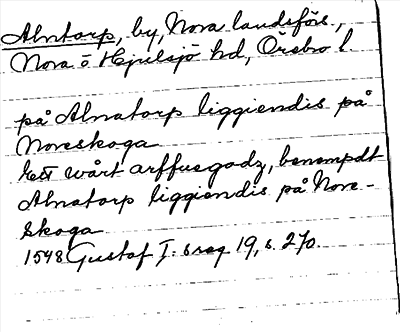 Alntorp, by, Nora landsförs.,
Nora o Hjulsjö hd, Örebro l.
på Alnatorp liggiendis på
Noreskoga
ett wårt arffuegodz, benempdt
Alnatorp liggiendis på Nore-
skoga
1548 Gustaf I:s reg 19, s. 270.